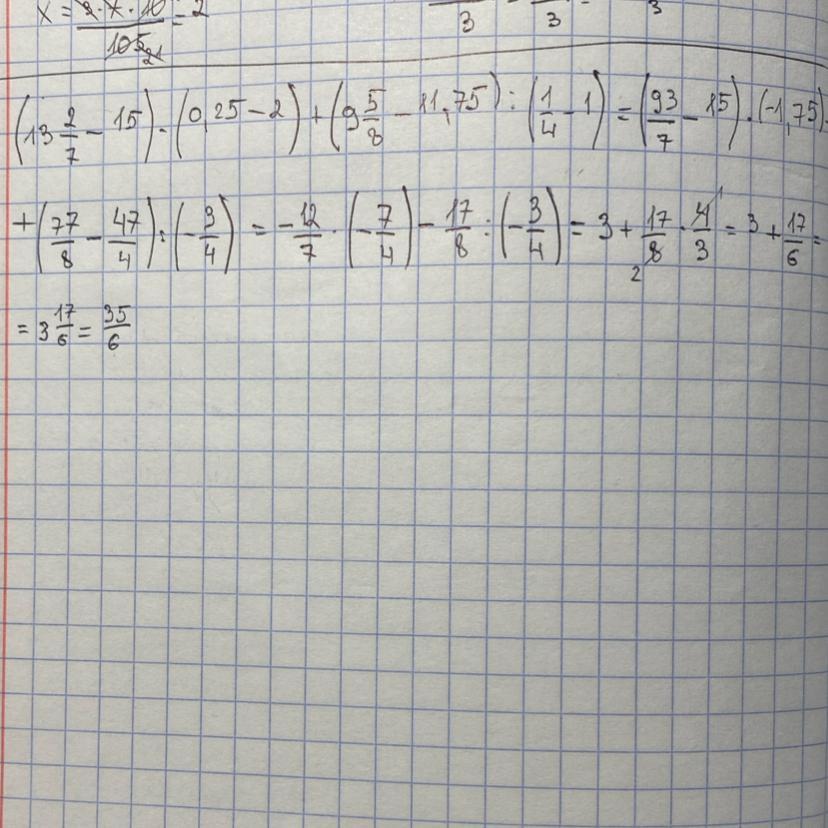 x = 3·7·10/105 = 2
3 3 3
(13 2/7 − 15) · (0,25 − 2) + (9 5/8 − 11,75) : (1/4 − 1) = (93/7 − 15) · (−1,75)
+ (77/8 − 47/4) : (− 3/4) = − 12/7 · (− 7/4) − 17/8 : (− 3/4) = 3 + 17/8 · 4/3 = 3 + 17/6 =
2 1
= 3 17/6 = 35/6